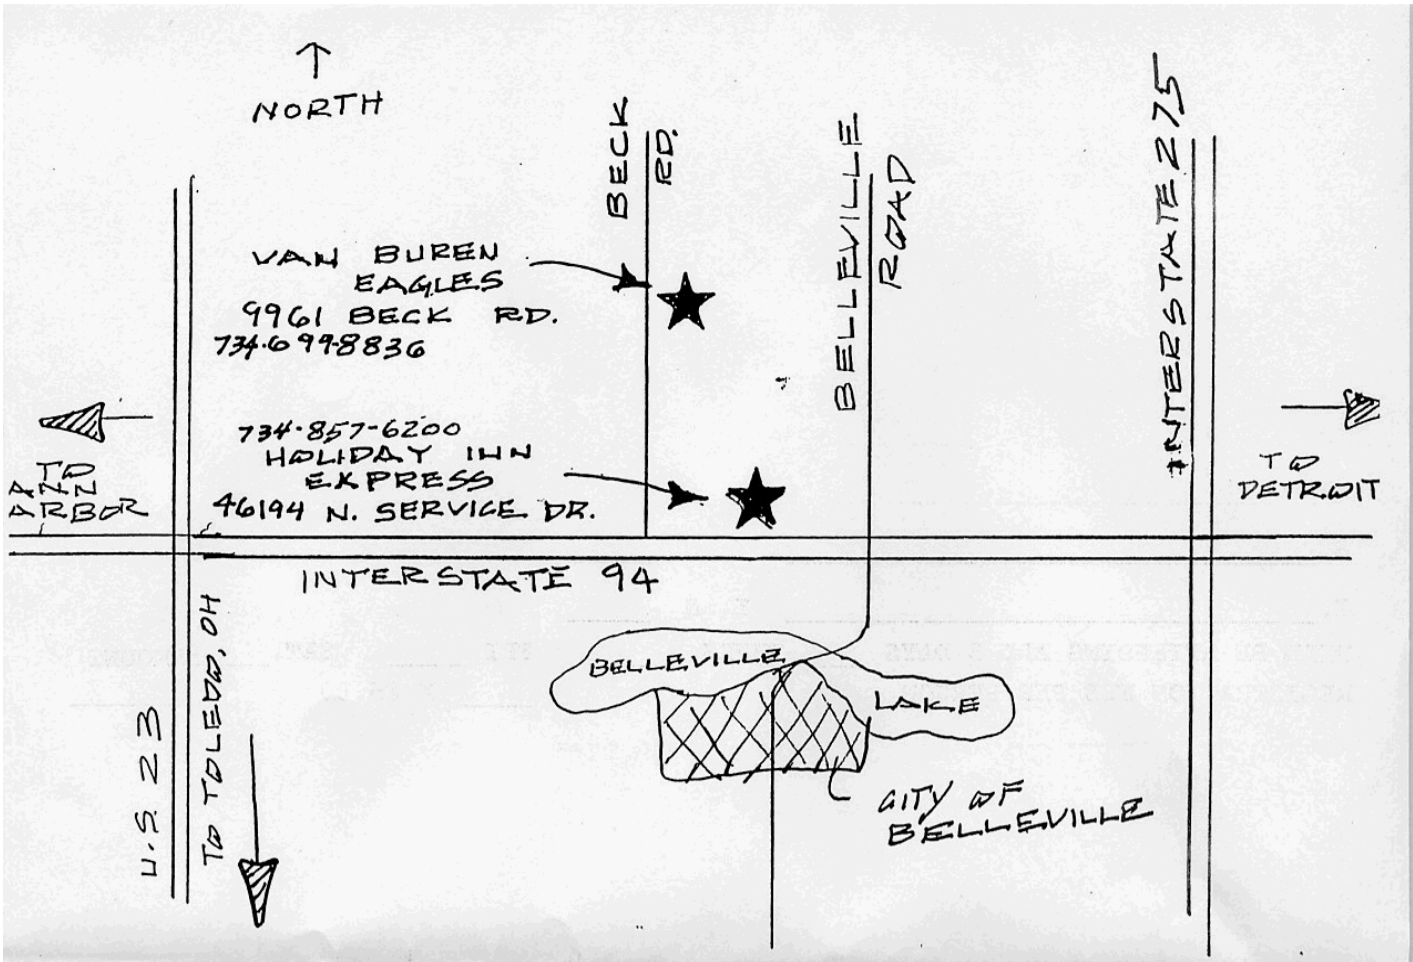 NORTH
BECK
RD.
BELLEVILLE
ROAD
INTERSTATE 275
VAN BUREN
EAGLES
9961 BECK RD.
734-699-8836
734-857-6200
HOLIDAY INN
EXPRESS
46194 N. SERVICE DR.
TO
ANN
ARBOR
TO
DETROIT
INTERSTATE 94
U.S. 23
TO TOLEDO, OH
BELLEVILLE
LAKE
CITY OF
BELLEVILLE